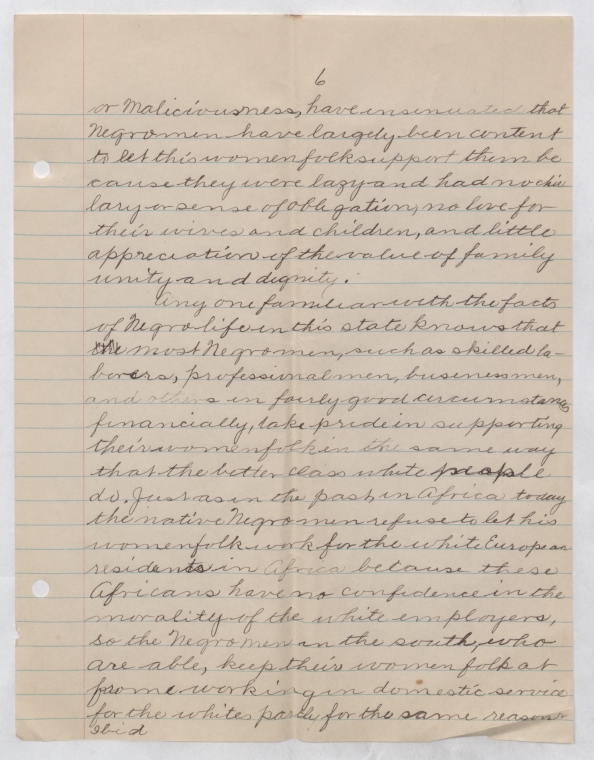 6
or Maliciousness, have insinuated that
Negro men have largely been content
to let this womenfolk support them be
cause they were lazy and had no chiv
lary or sense of obligation, no love for
their wives and children, and little
appreciation of the value of family
unity and dignity.
Any one familiar with the facts
of Negro life in this state knows that
most Negro men, such as skilled la-
borers, professional men, businessmen,
and others in fairly good circumstances
financially, take pride in supporting
their womenfolk in the same way
that the better class white people
do. Just as in the past, in Africa today
the native Negro men refuse to let his
womenfolk work for the white European
residents in Africa because these
Africans have no confidence in the
morality of the white employers,
so the Negro men in the south, who
are able, keep their womenfolk at
home working in domestic service
for the whites partly for the same reason
Ibid